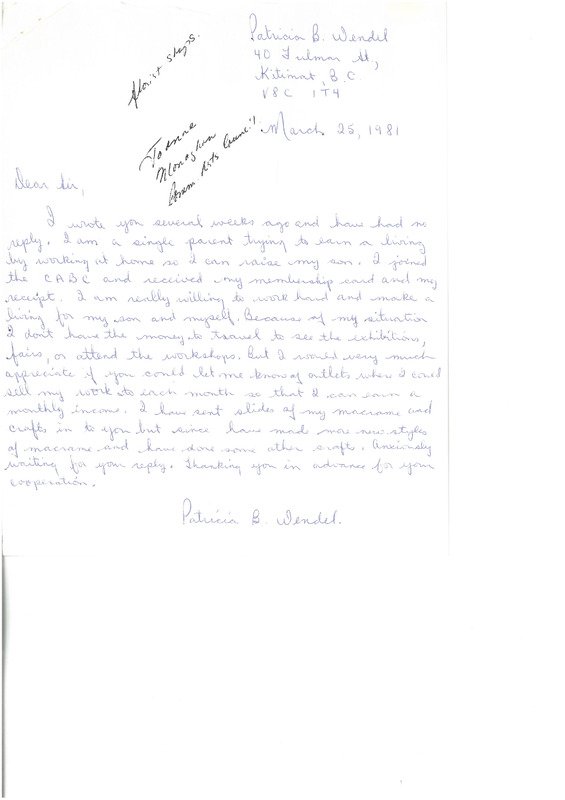 Patricia B. Wendel
40 Fulmar St,
Kitimat, B.C.
V8C 1T4
March 25, 1981
florist shops.
Joanne
Monaghan
Comm. Arts Council
Dear Sir,
I wrote you several weeks ago and have had no
reply. I am a single parent trying to earn a living
by working at home so I can raise my son. I joined
the CABC and received my membership card and my
receipt. I am really willing to work hard and make a
living for my son and myself. Because of my situation
I don't have the money to travel to see the exhibitions,
fairs, or attend the workshops. But I would very much
appreciate if you could let me know of outlets where I could
sell my work to each month so that I can earn a
monthly income. I have sent slides of my macrame and
crafts in to you but since have made more new styles
of macrame and have done some other crafts. Anxiously
waiting for your reply. Thanking you in advance for your
cooperation.
Patricia B. Wendel.